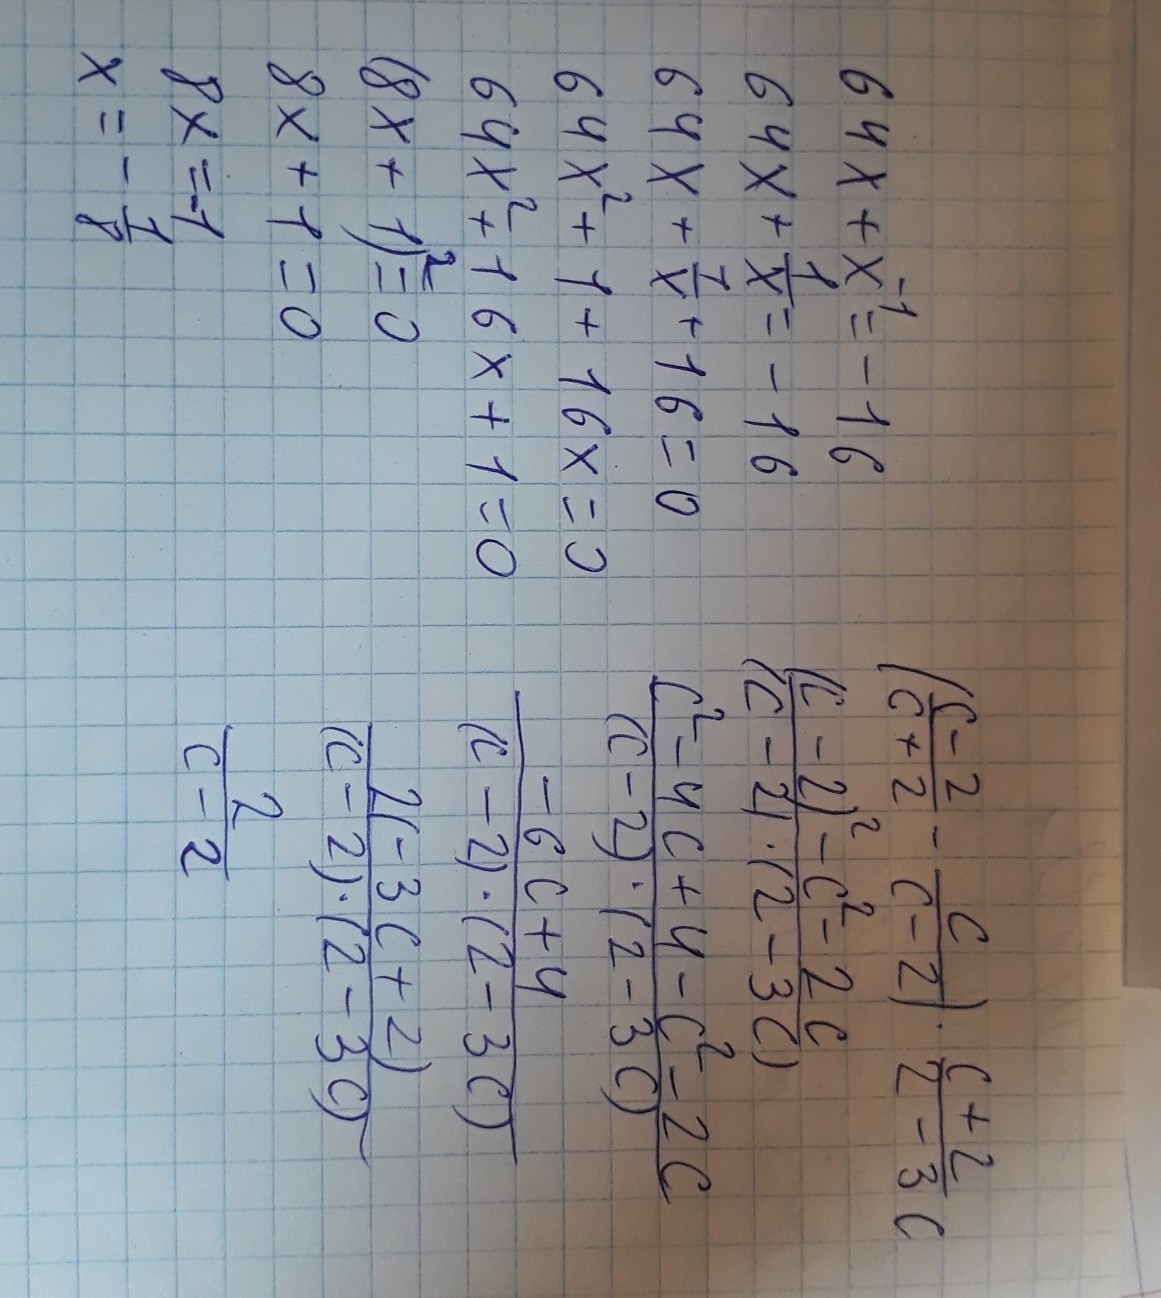 64x + x⁻¹ = -16
64x + 1/x = -16
64x + 1/x + 16 = 0
64x² + 1 + 16x = 0
64x² + 16x + 1 = 0
(8x + 1)² = 0
8x + 1 = 0
8x = -1
x = -1/8
((c-2)/(c+2) - c/(c-2)) · (c+2)/(2-3c)
((c-2)² - c² - 2c)/((c-2)·(2-3c))
(c² - 4c + 4 - c² - 2c)/((c-2)·(2-3c))
(-6c + 4)/((c-2)·(2-3c))
2(-3c + 2)/((c-2)·(2-3c))
2/(c-2)